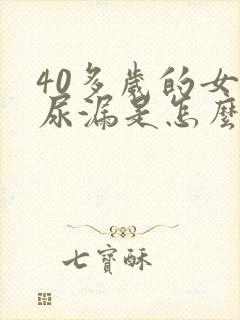 40多歲的女
尿漏是怎麼
七寶酥